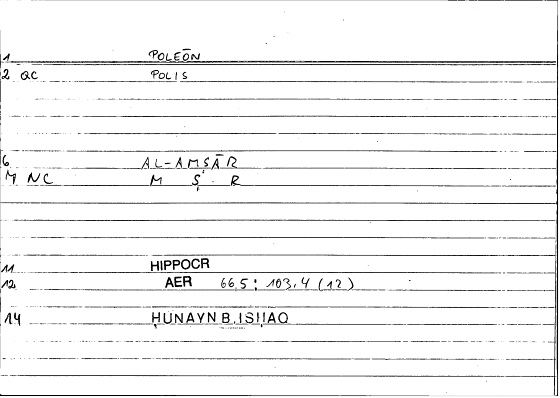 1 POLEŌN
2 QC POLIS
6 AL-AMSĀR
M NC M Ṣ R
11 HIPPOCR
12 AER 66,5 ; 103,4 (12)
14 ḤUNAYN B. ISḤAQ